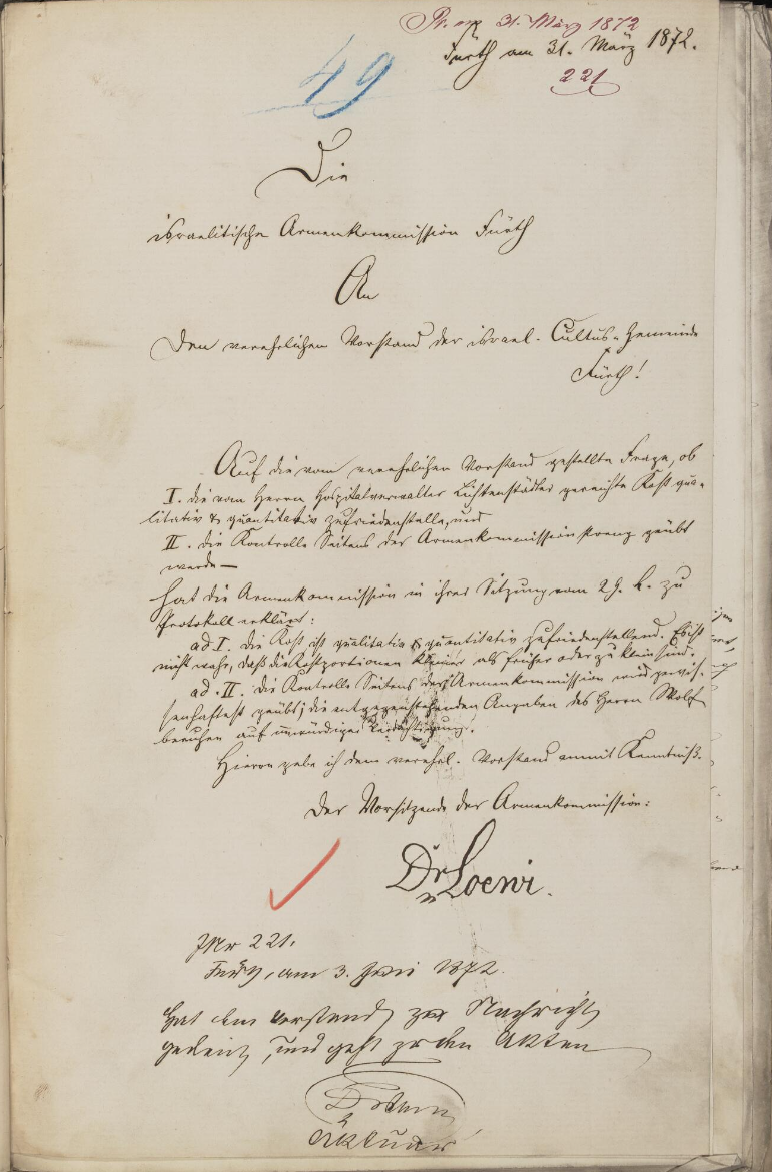 Pr. 31. März 1872
Fürth am 31. März 1872.
221
49
Die
israelitische Armenkommission Fürth
An
Den verehrlichen Vorstand der israel. Cultus-Gemeinde
Fürth!
Auf die vom verehrlichen Vorstand gestellte Frage, ob
I. die vom Herrn Hospitalverwalter Lichtenstädter gereichte Kost qua-
litativ & quantitativ zufriedenstelle, und
II. die Kontrolle Seitens der Armenkommission streng geübt
werde —
hat die Armenkommission in ihrer Sitzung vom 29. l. zu
Protokoll erklärt:
ad I. die Kost ist qualitativ & quantitativ zufriedenstellend. Es ist
nicht wahr, daß die Kostportionen kleiner als früher oder zu klein sind.
ad. II. die Kontrolle Seitens der Armenkommission wird gewis-
senhaftest geübt; die entgegenstehenden Angaben des Herrn Wolf
beruhen auf unwürdiger Verdächtigung.
Hievon gebe ich dem verehrl. Vorstand anmit Kenntniß.
Der Vorsitzende der Armenkommission:
Dr Loewi.
Nr 221.
Fürth, am 3. Juni 1872.
Hat dem Vorstand zur Nachricht
gedient, und geht zu den Akten
Aktuar